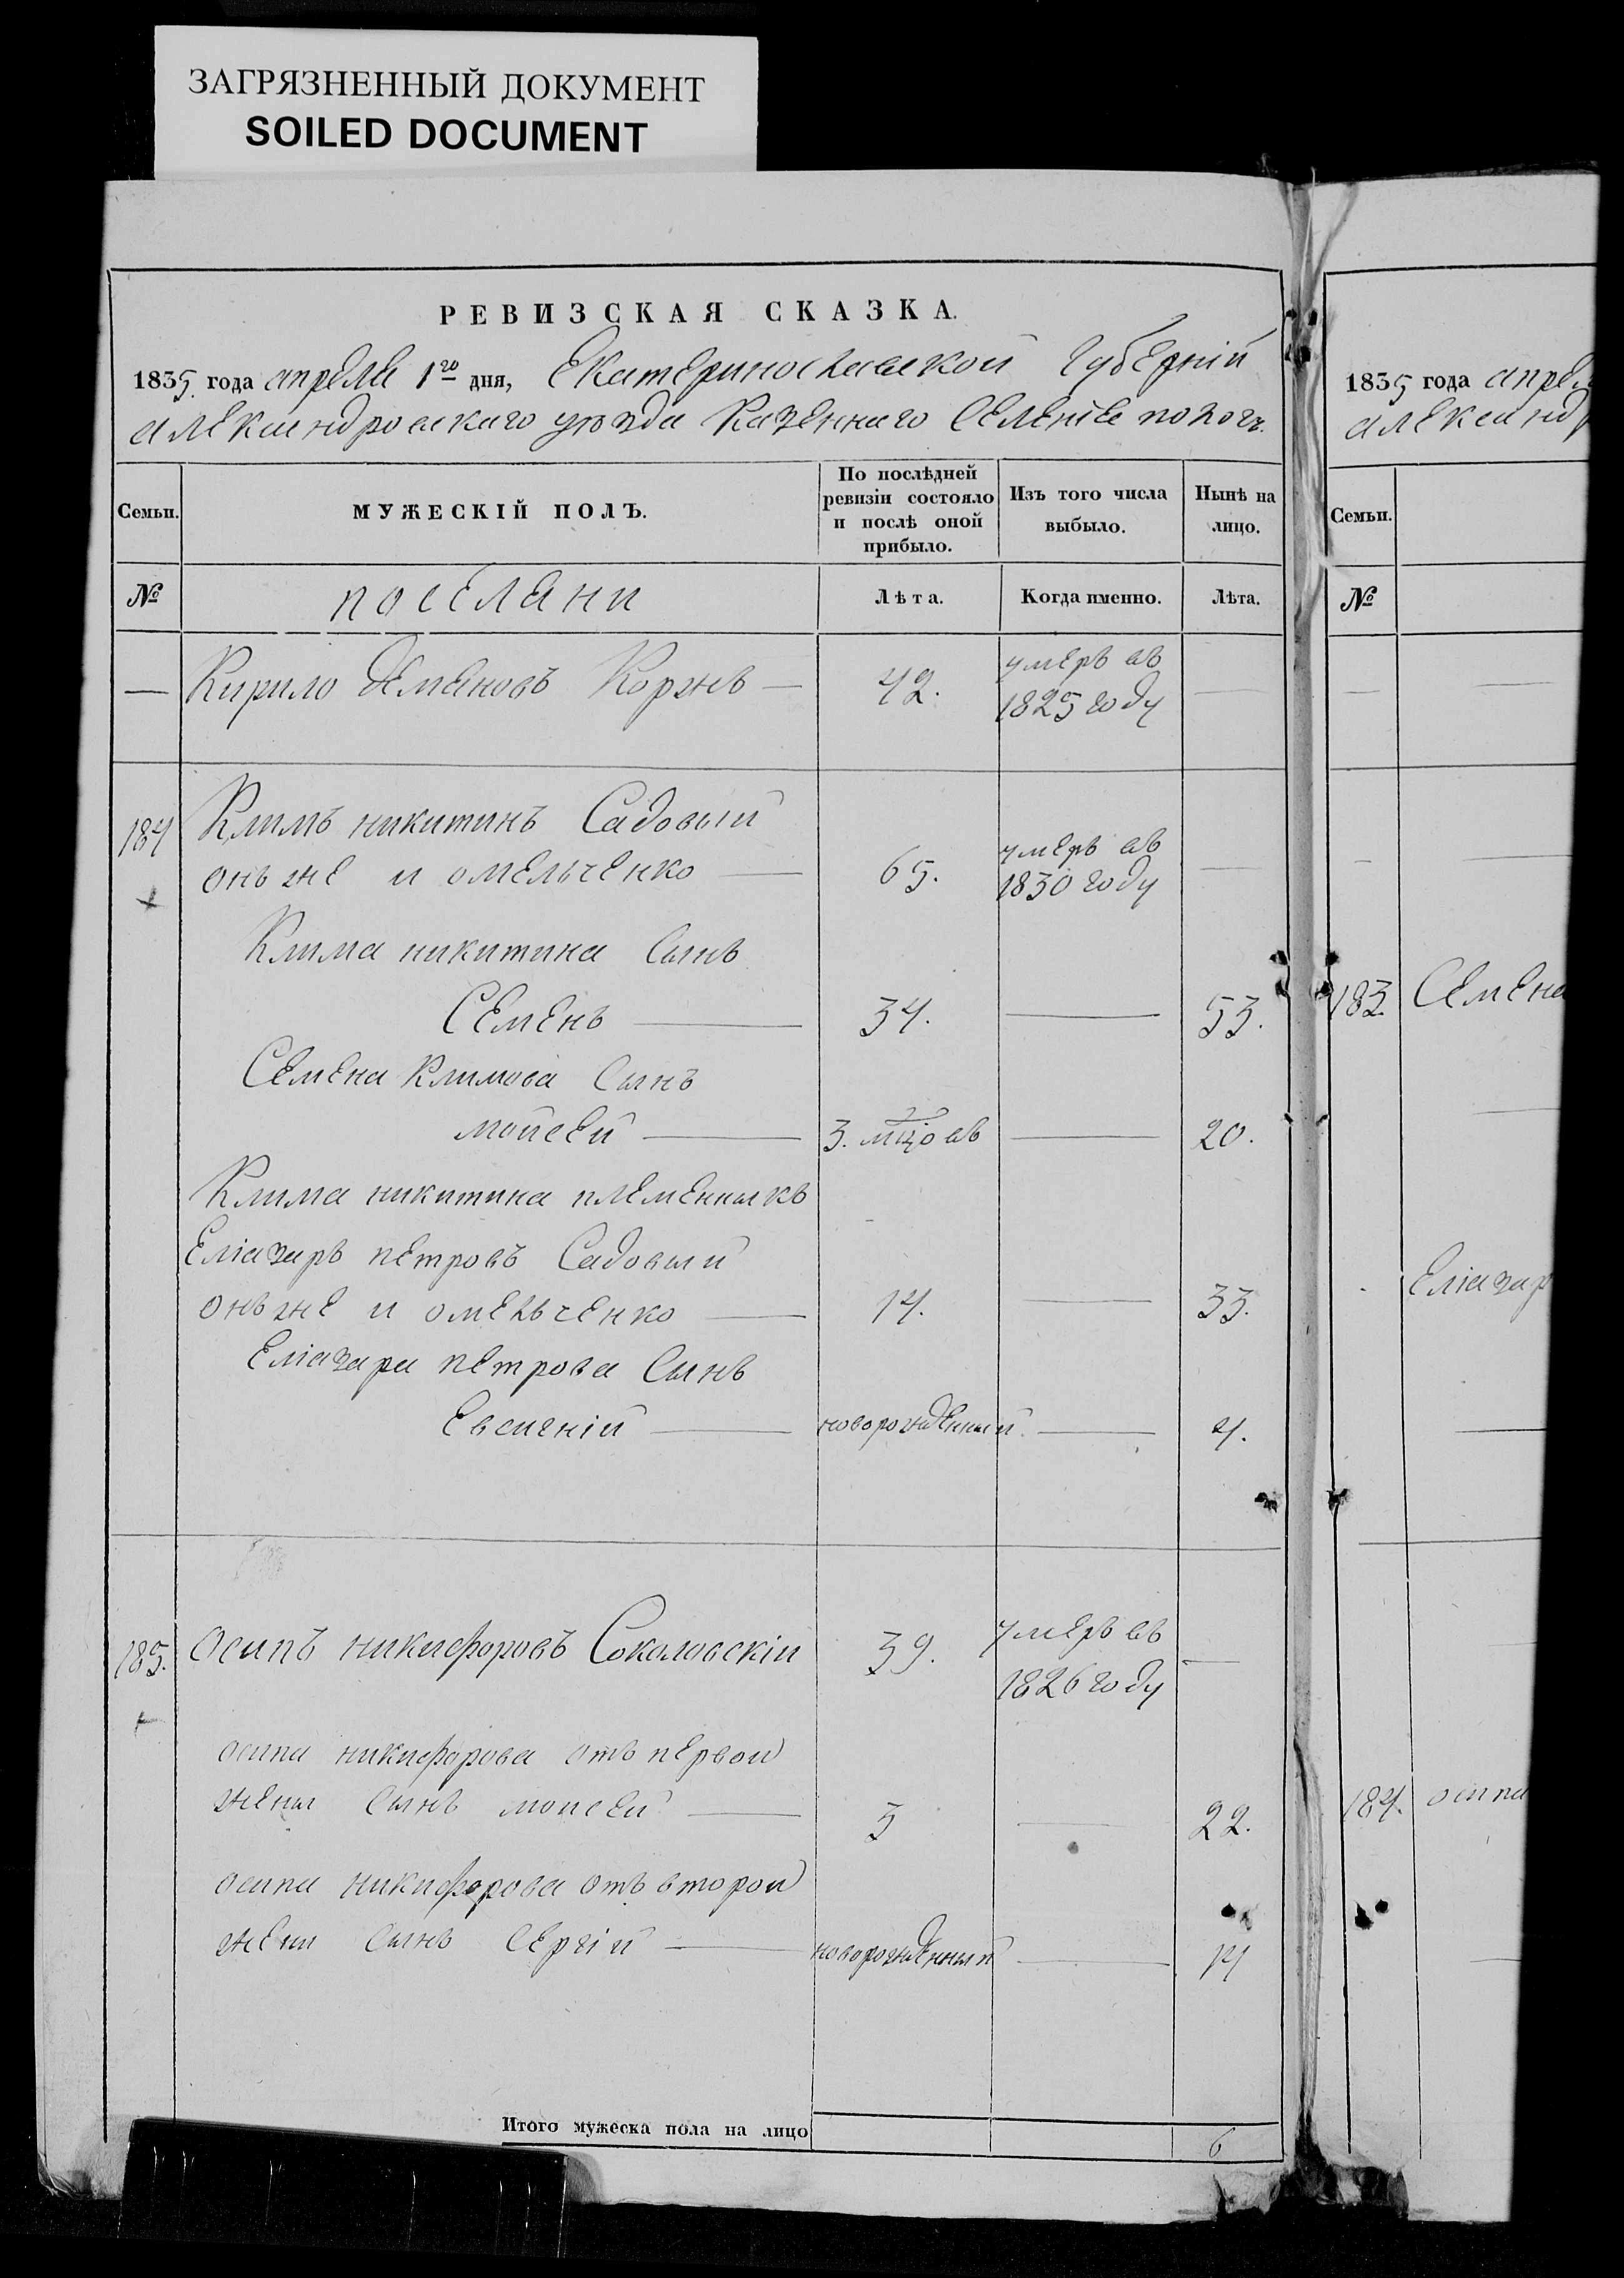 ЗАГРЯЗНЕННЫЙ ДОКУМЕНТ
SOILED DOCUMENT
РЕВИЗСКАЯ СКАЗКА.
1835. года апреля 1го дня, Екатеринославской Губерніи
александровскаго уѣзда Казеннаго Селенія пологъ.
Семьи.
МУЖЕСКІЙ ПОЛЪ.
По послѣдней ревизіи состояло и послѣ оной прибыло.
Изъ того числа выбыло.
Нынѣ на лицо.
№
поселяни
Лѣта.
Когда именно.
Лѣта.
— Кирило Демяновъ Коржъ — 42. умеръ въ 1825 году —
184 Климъ никитинъ Садовый
онъ же и омельченко — 65. умеръ въ 1830 году —
Клима никитина Сынъ
Семенъ — 34. — 53.
Семена Климова Сынъ
мойсей — 3. мцовъ — 20.
Клима никитина племенныкъ
Еліазаръ петровъ Садовый
онъ же и омельченко — 14. — 33.
Еліазара петрова Сынъ
Евсигній — новорожденный. — 4.
185. осипъ никифоровъ Соколовскій 39. умеръ въ 1826 году —
осипа никифорова отъ первой
жены Сынъ мойсей — 3 — 22.
осипа никифорова отъ второй
жены Сынъ Сергій — новорожденный — 14
Итого мужеска пола на лицо 6
1835 года апрел
александр
Семьи.
№
183. Семена
Еліазар
184. осипа